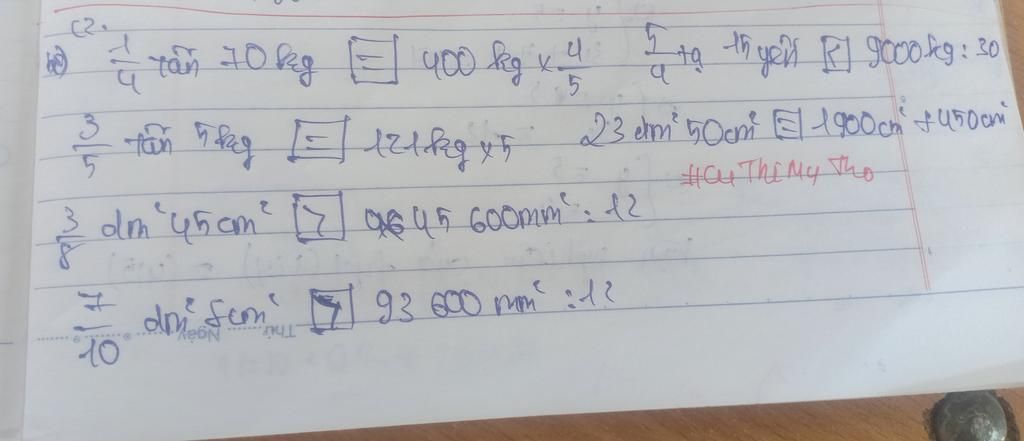 C2.
b) 1/4 tấn 70kg [=] 400kg x 4/5 5/4 tạ 15 yến [<] 9000kg : 30
3/5 tấn 5kg [=] 121kg x 5 23 dm² 50cm² [=] 1900cm² + 450cm²
#CuThiMyTho
3/8 dm² 45cm² [>] 45 600mm² : 12
7/10 dm² 5cm² [>] 93 600 mm² : 12
Thứ Ngày